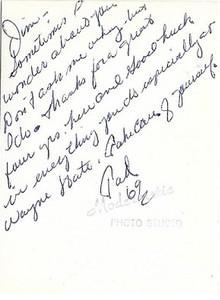 Jim -
Sometimes I
wonder about you
Don't ask me why, but
I do. Thanks for a great
four yrs. here and good luck
in everything you do especially at
Wayne State. Take care of yourself.
'69
PHOTO STUDIO